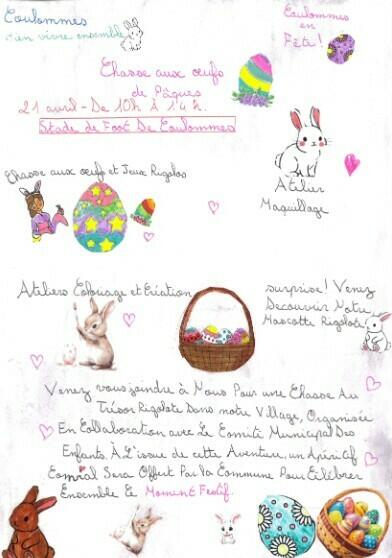 Coulommes
Bien vivre ensemble
Coulommes
en
Fête!
Chasse aux œufs
de Pâques
21 avril - De 10h À 14h.
Stade de Foot De Coulommes
Chasse aux œufs et Jeux Rigolos
Atelier
Maquillage
Ateliers Coloriage et Création
surprise! Venez
Découvrir Notre
Mascotte Rigolote
Venez vous joindre à Nous Pour une Chasse Au
Trésor Rigolote Dans notre Village, Organisée
En Collaboration avec Le Comité Municipal Des
Enfants. À L'issue de cette Aventure, un Apéritif
Convivial Sera Offert Par La Commune Pour Célébrer
Ensemble Ce Moment Festif.